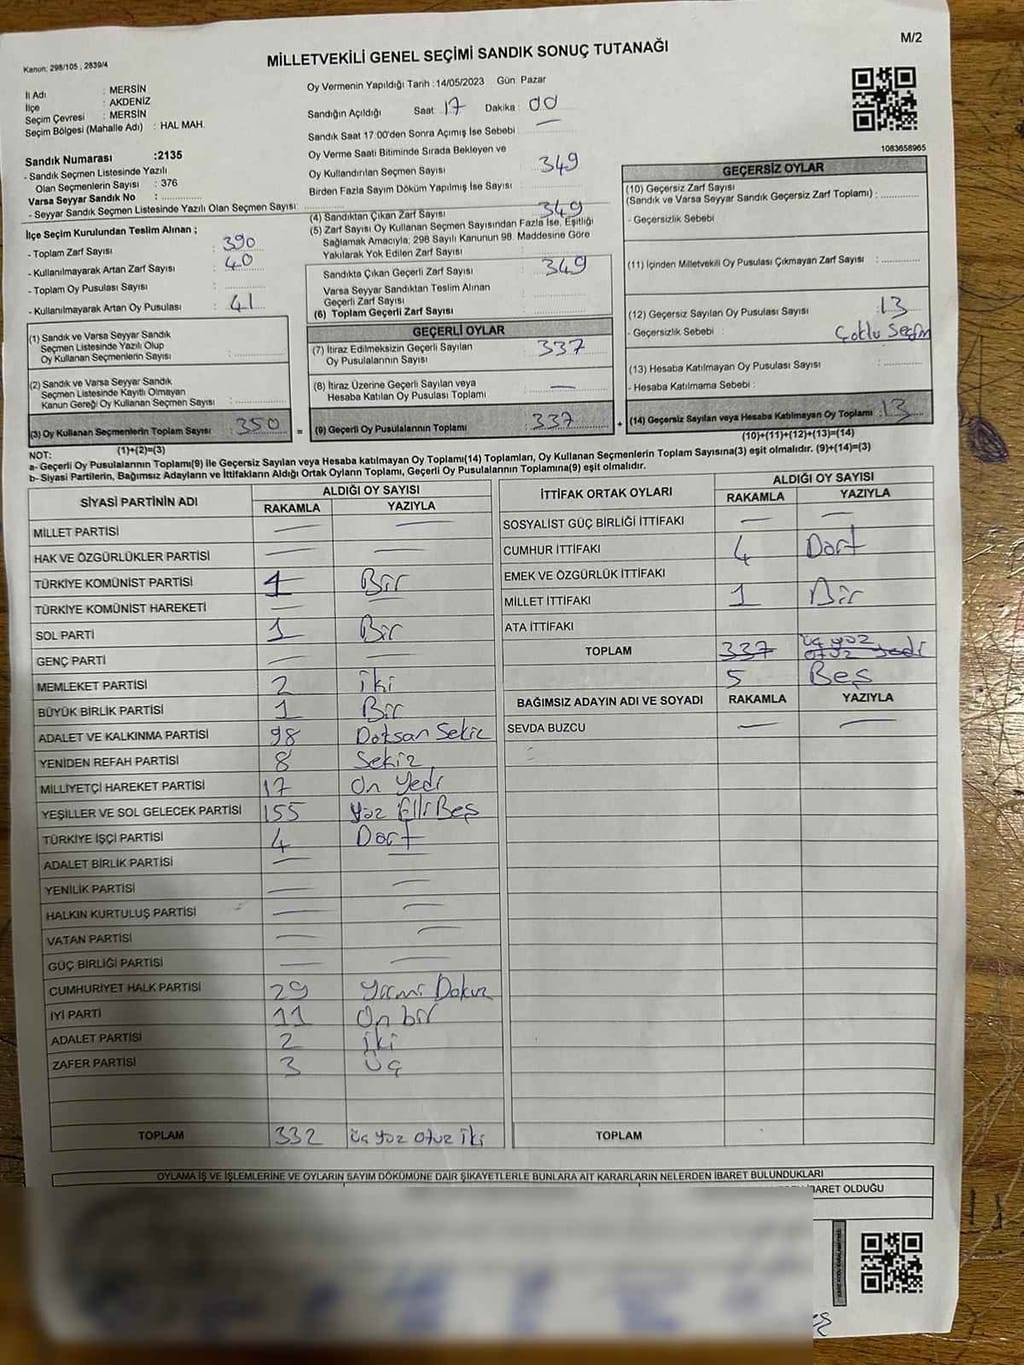 M/2
Kanun: 298/105 , 2839/4
MİLLETVEKİLİ GENEL SEÇİMİ SANDIK SONUÇ TUTANAĞI
İl Adı : MERSİN
İlçe : AKDENİZ
Seçim Çevresi : MERSİN
Seçim Bölgesi (Mahalle Adı) : HAL MAH.
Sandık Numarası :2135
- Sandık Seçmen Listesinde Yazılı
Olan Seçmenlerin Sayısı : 376
Varsa Seyyar Sandık No :
- Seyyar Sandık Seçmen Listesinde Yazılı Olan Seçmen Sayısı:
İlçe Seçim Kurulundan Teslim Alınan ;
- Toplam Zarf Sayısı : 390
- Kullanılmayarak Artan Zarf Sayısı : 40
- Toplam Oy Pusulası Sayısı :
- Kullanılmayarak Artan Oy Pusulası : 41
(1) Sandık ve Varsa Seyyar Sandık
Seçmen Listesinde Yazılı Olup
Oy Kullanan Seçmenlerin Sayısı :
(2) Sandık ve Varsa Seyyar Sandık
Seçmen Listesinde Kayıtlı Olmayan
Kanun Gereği Oy Kullanan Seçmen Sayısı :
(3) Oy Kullanan Seçmenlerin Toplam Sayısı : 350
(1)+(2)=(3)
Oy Vermenin Yapıldığı Tarih :14/05/2023 Gün: Pazar
Sandığın Açıldığı Saat 17 Dakika : 00
Sandık Saat 17:00'den Sonra Açımış İse Sebebi : —
Oy Verme Saati Bitiminde Sırada Bekleyen ve
Oy Kullandırılan Seçmen Sayısı : 349
Birden Fazla Sayım Döküm Yapılmış İse Sayısı :
(4) Sandıktan Çıkan Zarf Sayısı : 349
(5) Zarf Sayısı Oy Kullanan Seçmen Sayısından Fazla İse, Eşitliği
Sağlamak Amacıyla, 298 Sayılı Kanunun 98. Maddesine Göre
Yakılarak Yok Edilen Zarf Sayısı :
Sandıkta Çıkan Geçerli Zarf Sayısı : 349
Varsa Seyyar Sandıktan Teslim Alınan
Geçerli Zarf Sayısı :
(6) Toplam Geçerli Zarf Sayısı :
GEÇERLİ OYLAR
(7) İtiraz Edilmeksizin Geçerli Sayılan
Oy Pusulalarının Sayısı : 337
(8) İtiraz Üzerine Geçerli Sayılan veya
Hesaba Katılan Oy Pusulası Toplamı : —
= (9) Geçerli Oy Pusulalarının Toplamı : 337 +
1083658965
GEÇERSİZ OYLAR
(10) Geçersiz Zarf Sayısı
(Sandık ve Varsa Seyyar Sandık Geçersiz Zarf Toplamı) :
- Geçersizlik Sebebi :
(11) İçinden Milletvekili Oy Pusulası Çıkmayan Zarf Sayısı :
(12) Geçersiz Sayılan Oy Pusulası Sayısı : 13
- Geçersizlik Sebebi : Çoklu Seçim
(13) Hesaba Katılmayan Oy Pusulası Sayısı :
- Hesaba Katılmama Sebebi :
(14) Geçersiz Sayılan veya Hesaba Katılmayan Oy Toplamı : 13
(10)+(11)+(12)+(13)=(14)
NOT:
a- Geçerli Oy Pusulalarının Toplamı(9) ile Geçersiz Sayılan veya Hesaba katılmayan Oy Toplamı(14) Toplamları, Oy Kullanan Seçmenlerin Toplam Sayısına(3) eşit olmalıdır. (9)+(14)=(3)
b- Siyasi Partilerin, Bağımsız Adayların ve İttifakların Aldığı Ortak Oyların Toplamı, Geçerli Oy Pusulalarının Toplamına(9) eşit olmalıdır.
SİYASİ PARTİNİN ADI ALDIĞI OY SAYISI
RAKAMLA YAZIYLA
MİLLET PARTİSİ — —
HAK VE ÖZGÜRLÜKLER PARTİSİ — —
TÜRKİYE KOMÜNİST PARTİSİ 1 Bir
TÜRKİYE KOMÜNİST HAREKETİ — —
SOL PARTİ 1 Bir
GENÇ PARTİ — —
MEMLEKET PARTİSİ 2 iki
BÜYÜK BİRLİK PARTİSİ 1 Bir
ADALET VE KALKINMA PARTİSİ 98 Doksan Sekiz
YENİDEN REFAH PARTİSİ 8 Sekiz
MİLLİYETÇİ HAREKET PARTİSİ 17 On Yedi
YEŞİLLER VE SOL GELECEK PARTİSİ 155 Yüz Elli Beş
TÜRKİYE İŞÇİ PARTİSİ 4 Dört
ADALET BİRLİK PARTİSİ — —
YENİLİK PARTİSİ — —
HALKIN KURTULUŞ PARTİSİ — —
VATAN PARTİSİ — —
GÜÇ BİRLİĞİ PARTİSİ — —
CUMHURİYET HALK PARTİSİ 29 Yirmi Dokuz
İYİ PARTİ 11 On bir
ADALET PARTİSİ 2 iki
ZAFER PARTİSİ 3 Üç
TOPLAM 332 üç yüz otuz iki
İTTİFAK ORTAK OYLARI ALDIĞI OY SAYISI
RAKAMLA YAZIYLA
SOSYALİST GÜÇ BİRLİĞİ İTTİFAKI — —
CUMHUR İTTİFAKI 4 Dört
EMEK VE ÖZGÜRLÜK İTTİFAKI
MİLLET İTTİFAKI 1 Bir
ATA İTTİFAKI
TOPLAM 337 üç yüz otuz yedi
5 Beş
BAĞIMSIZ ADAYIN ADI VE SOYADI RAKAMLA YAZIYLA
SEVDA BUZCU — —
TOPLAM
OYLAMA İŞ VE İŞLEMLERİNE VE OYLARIN SAYIM DÖKÜMÜNE DAİR ŞİKAYETLERLE BUNLARA AİT KARARLARIN NELERDEN İBARET BULUNDUKLARI
İBARET OLDUĞU